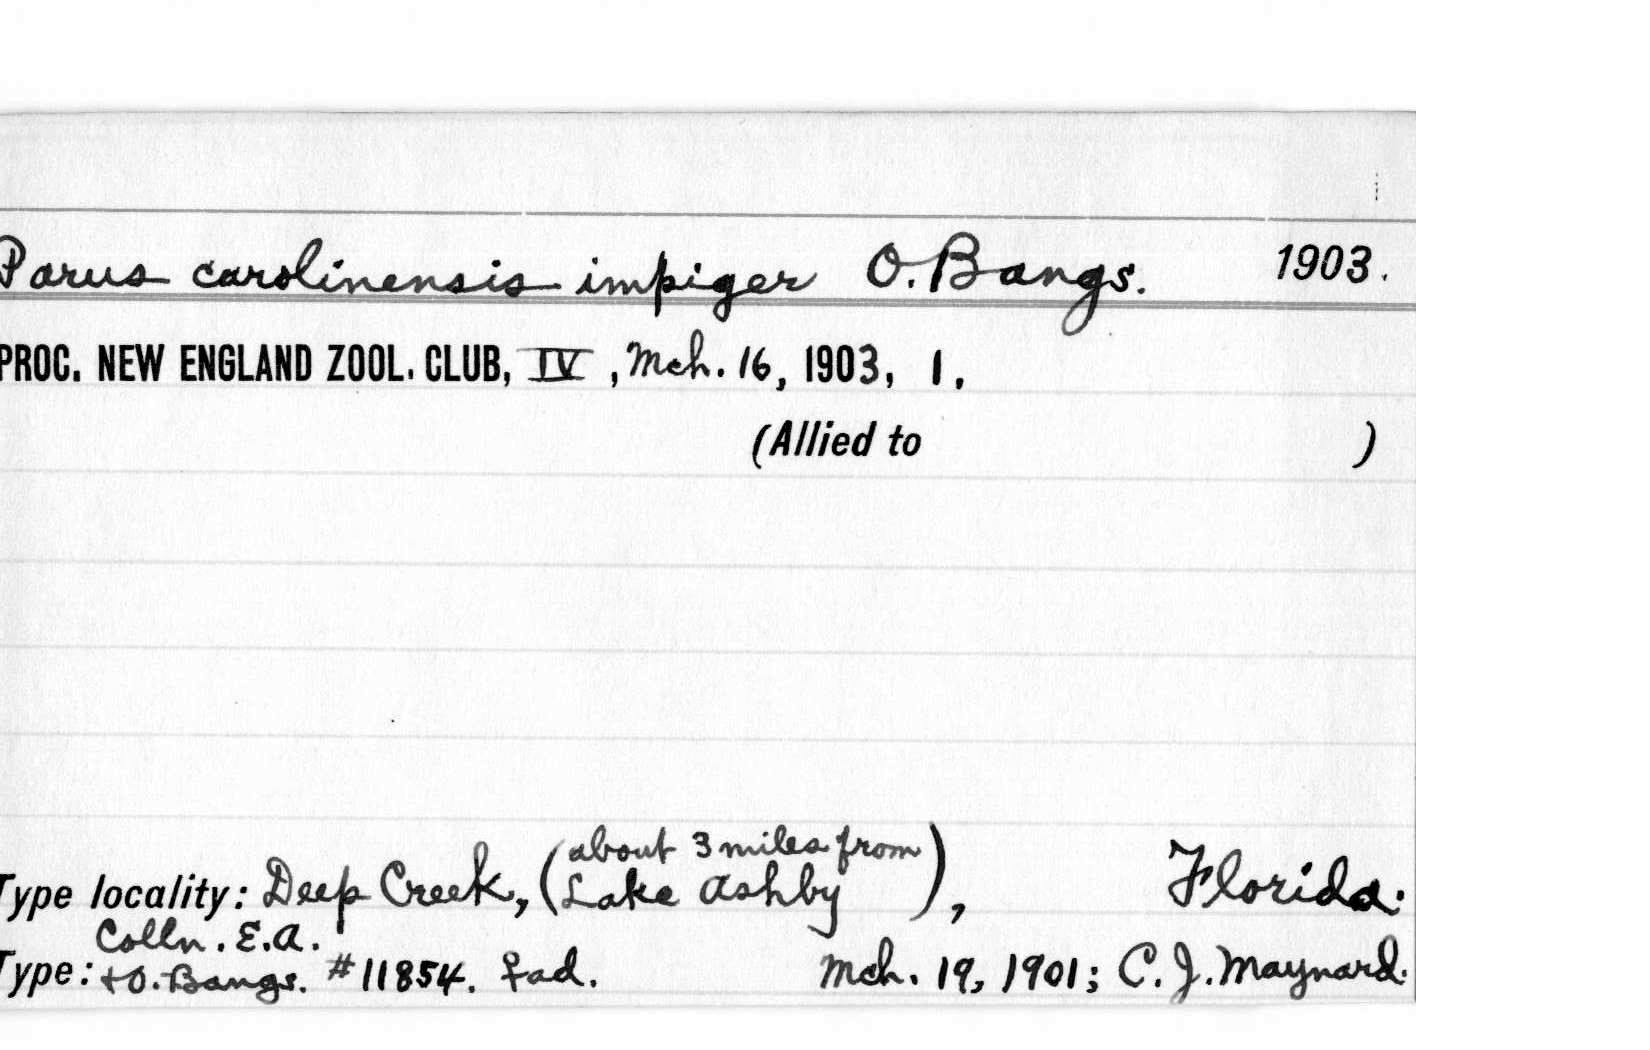 Parus carolinensis impiger O. Bangs. 1903.
PROC. NEW ENGLAND ZOOL. CLUB, IV, Mch. 16, 1903, 1.
(Allied to )
about 3 miles from
Type locality: Deep Creek, (Lake Ashby), Florida.
Colln. E.A.
Type: + O. Bangs. #11854. ♀ ad. Mch. 19, 1901; C. J. Maynard.